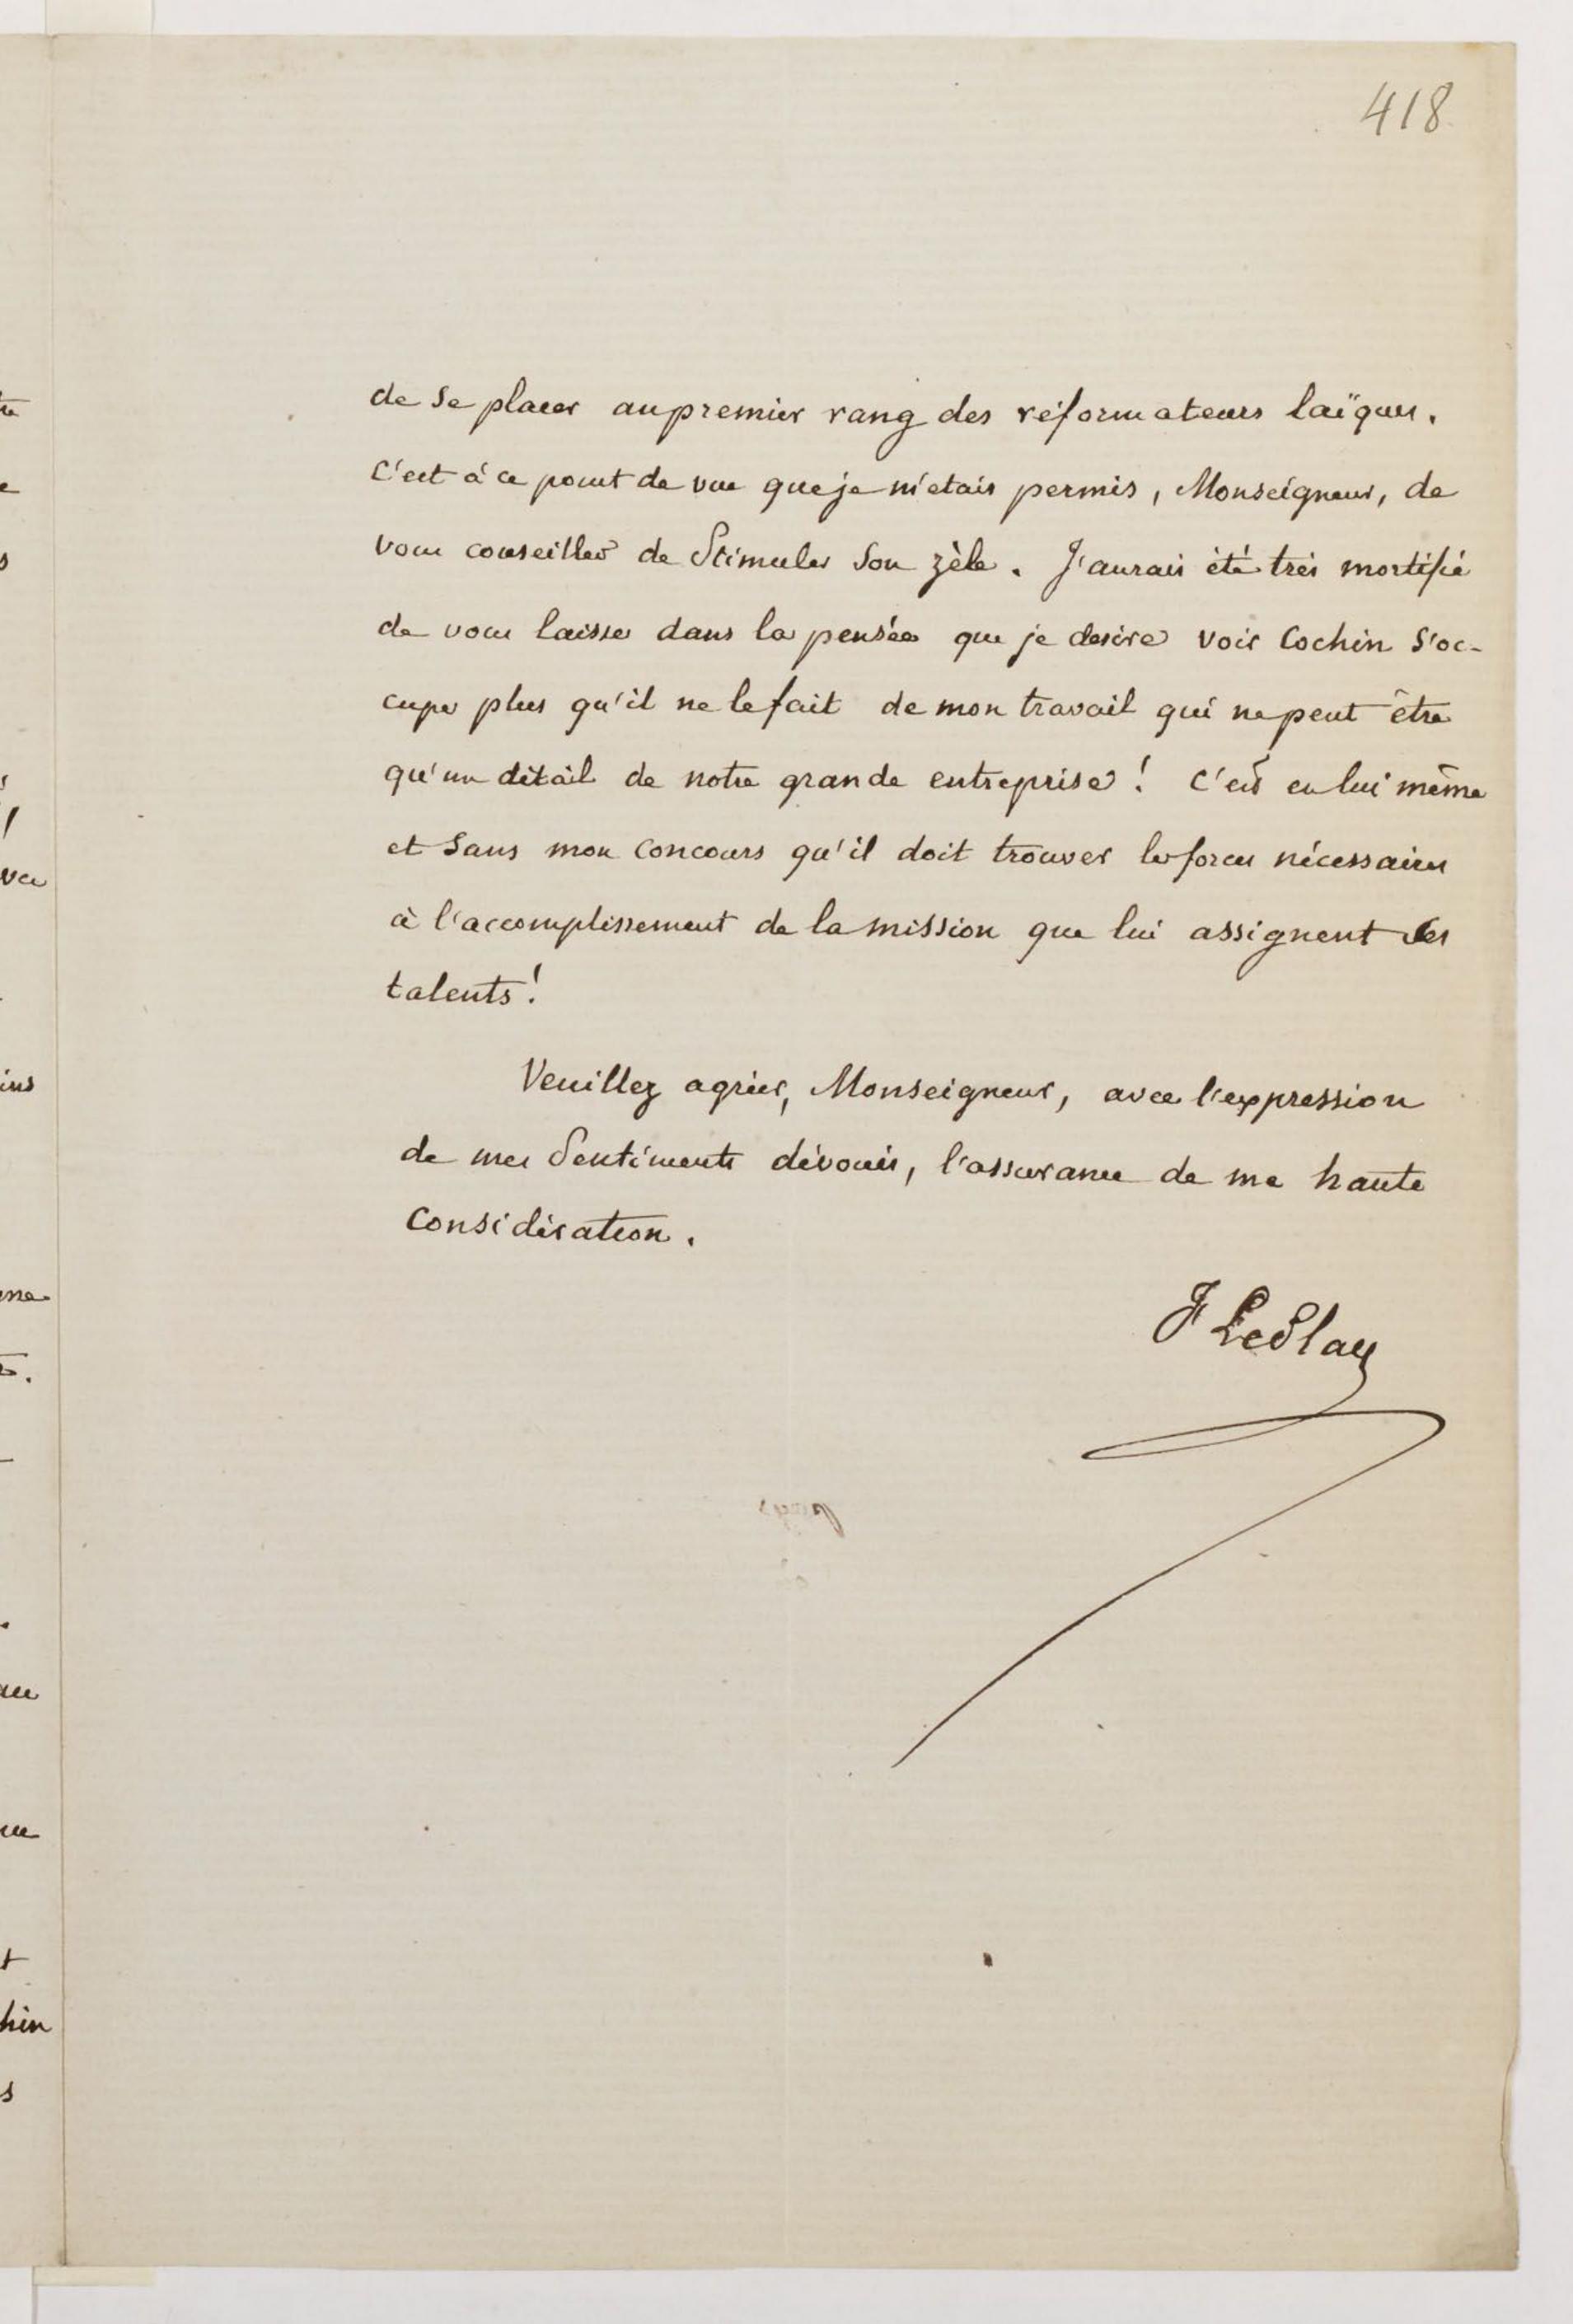 418
de se placer au premier rang des réformateurs laïques.
C'est à ce point de vue que je m'etais permis, Monseigneur, de
vous conseiller de stimuler son zèle. J'aurais été très mortifié
de vous laisser dans la pensée que je desire voir Cochin s'oc-
cuper plus qu'il ne le fait de mon travail qui ne peut être
qu'un détail de notre grande entreprise! C'est en lui même
et sans mon concours qu'il doit trouver les forces nécessaires
à l'accomplissement de la mission que lui assignent ses
talents!
Veuillez agréer, Monseigneur, avec l'expression
de mes sentiments dévoués, l'assurance de ma haute
considération.
F LePlay